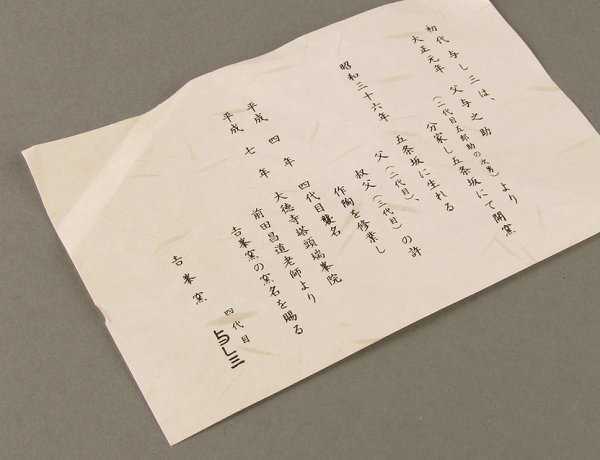 初代 与し三は、
大正元年 父 与之助 より
(二代目五郎助の次男)
分家し五条坂にて開窯
昭和三十六年 五条坂に生れる
父(二代目)、
叔父(三代目)の許
作陶を修業し
平成 四年 四代目襲名
平成 七年 大徳寺塔頭瑞峯院
前田昌道老師より
吉峯窯の窯名を賜る
吉峯窯
四代目
与し三